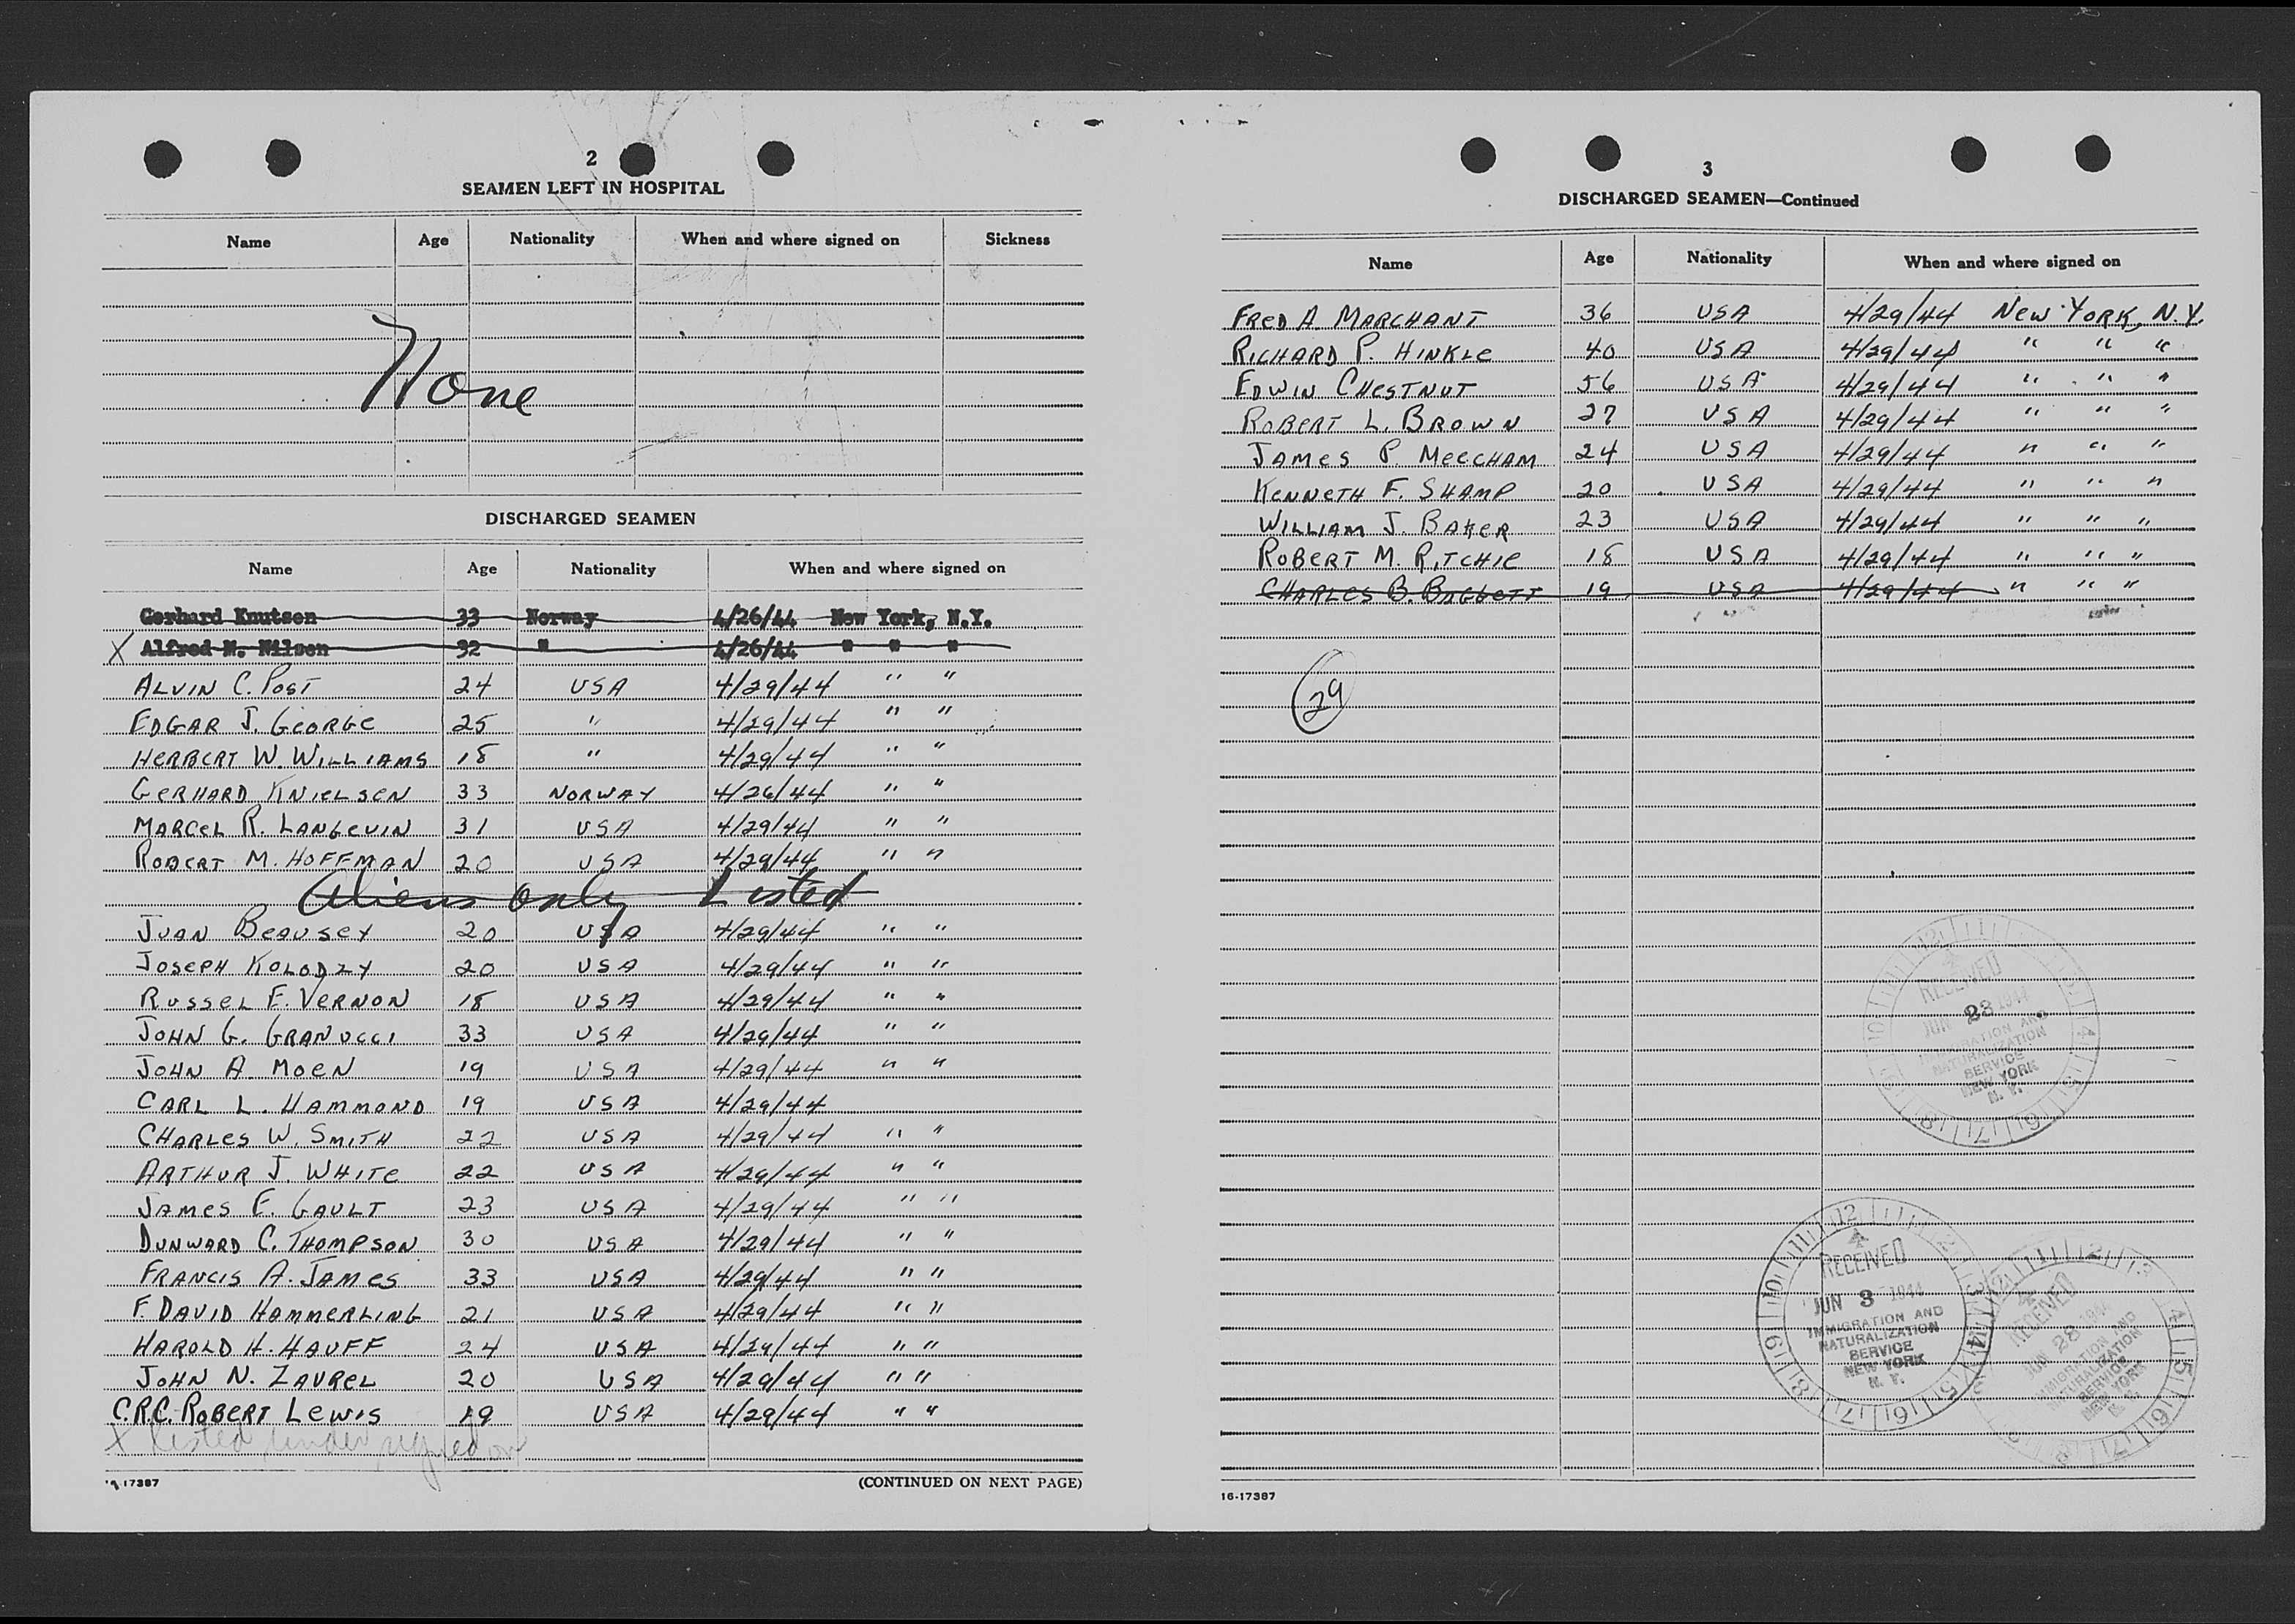 2
SEAMEN LEFT IN HOSPITAL
Name Age Nationality When and where signed on Sickness
None
DISCHARGED SEAMEN
Name Age Nationality When and where signed on
Gerhard Knutsen 33 Norway 4/26/44 New York, N.Y.
X Alfred N. Nilsen 32 " 4/26/44 " " "
ALVIN C. POST 24 USA 4/29/44 " "
EDGAR J. GEORGE 25 " 4/29/44 " "
HERBERT W. WILLIAMS 18 " 4/29/44 " "
GERHARD KNIELSEN 33 NORWAY 4/26/44 " "
MARCEL R. LANGEVIN 31 USA 4/29/44 " "
ROBERT M. HOFFMAN 20 USA 4/29/44 " "
Aliens only Listed
JUAN BEAUSEY 20 USA 4/29/44 " "
JOSEPH KOLODZY 20 USA 4/29/44 " "
RUSSEL E. VERNON 18 USA 4/29/44 " "
JOHN G. GRANUCCI 33 USA 4/29/44 " "
JOHN A. MOEN 19 USA 4/29/44 " "
CARL L. HAMMOND 19 USA 4/29/44
CHARLES W. SMITH 22 USA 4/29/44 " "
ARTHUR J. WHITE 22 USA 4/29/44 " "
JAMES E. GAULT 23 USA 4/29/44 " "
DUNWARD C. THOMPSON 30 USA 4/29/44 " "
FRANCIS A. JAMES 33 USA 4/29/44 " "
F. DAVID HAMMERLING 21 USA 4/29/44 " "
HAROLD H. HAUFF 24 USA 4/29/44 " "
JOHN N. ZAUREL 20 USA 4/29/44 " "
C.R.C. ROBERT LEWIS 19 USA 4/29/44 " "
X Listed under signed on
17387 (CONTINUED ON NEXT PAGE)
3
DISCHARGED SEAMEN—Continued
Name Age Nationality When and where signed on
FRED A. MARCHANT 36 USA 4/29/44 NEW YORK, N.Y.
RICHARD P. HINKLE 40 USA 4/29/44 " " "
EDWIN CHESTNUT 56 USA 4/29/44 " " "
ROBERT L. BROWN 27 USA 4/29/44 " " "
JAMES P. MEECHAM 24 USA 4/29/44 " " "
KENNETH F. SHAMP 20 USA 4/29/44 " " "
WILLIAM J. BAKER 23 USA 4/29/44 " " "
ROBERT M. RITCHIE 18 USA 4/29/44 " " "
CHARLES B. BAGGETT 19 USA 4/29/44 " " "
29
RECEIVED
JUN 28 1944
IMMIGRATION AND
NATURALIZATION
SERVICE
NEW YORK
N. Y.
RECEIVED
JUN 3 1944
IMMIGRATION AND
NATURALIZATION
SERVICE
NEW YORK
N. Y.
RECEIVED
JUN 28 1944
IMMIGRATION AND
NATURALIZATION
SERVICE
NEW YORK
N. Y.
16-17387